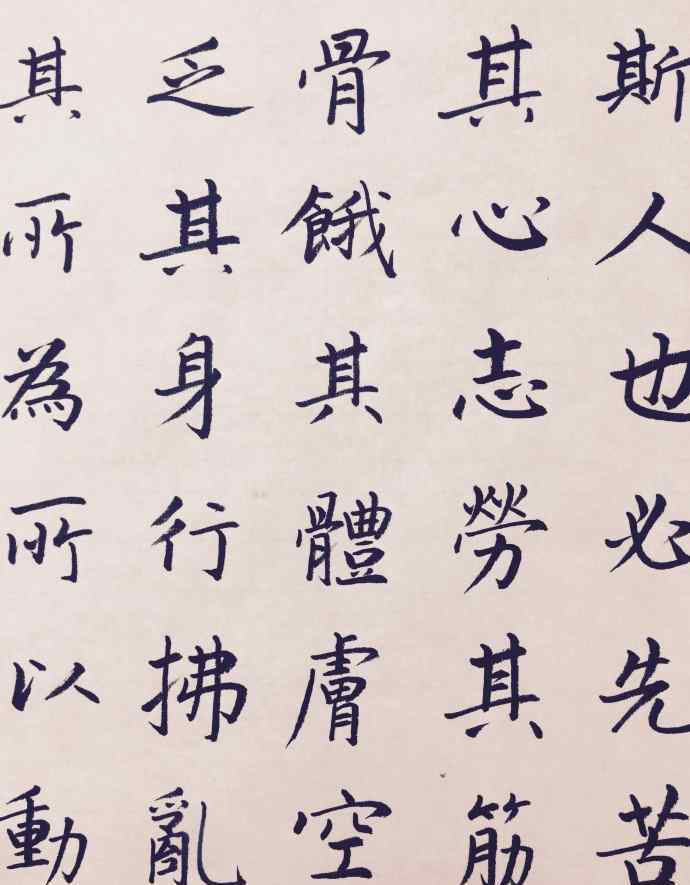 斯人也必先苦
其心志勞其筋
骨餓其體膚空
乏其身行拂亂
其所為所以動